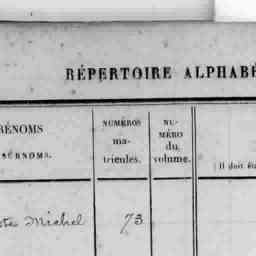 RÉPERTOIRE ALPHABÉ
RÉNOMS
SURNOMS.
NUMÉROS
ma-
tricules.
NU-
MÉRO
du
volume.
Il doit êt
Michel 73